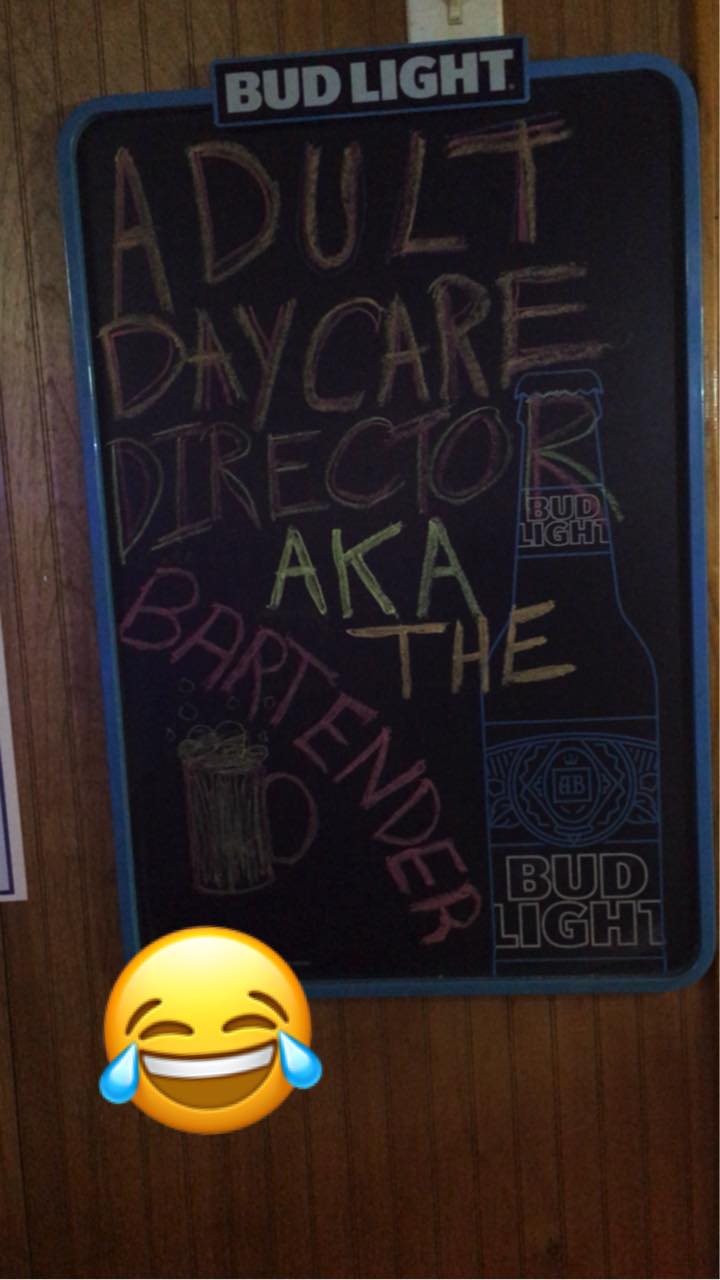 BUD LIGHT
ADULT
DAYCARE
DIRECTOR
BUD
LIGHT
AKA
THE
BARTENDER
B
BUD
LIGHT